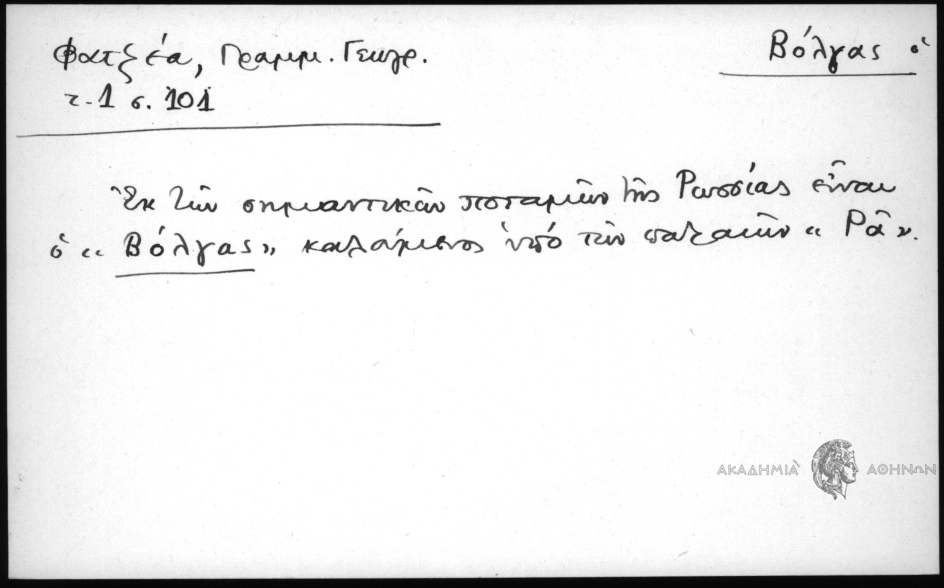 Φατζέα, Γραμμ. Γεωγρ.
τ. 1 σ. 101
Βόλγας ὁ
Ἐκ τῶν σημαντικῶν ποταμῶν τῆς Ρωσσίας εἶναι
ὁ « Βόλγας » καλούμενος ὑπό τῶν παλαιῶν « Ρᾶ ».
ΑΚΑΔΗΜΙΑ ΑΘΗΝΩΝ